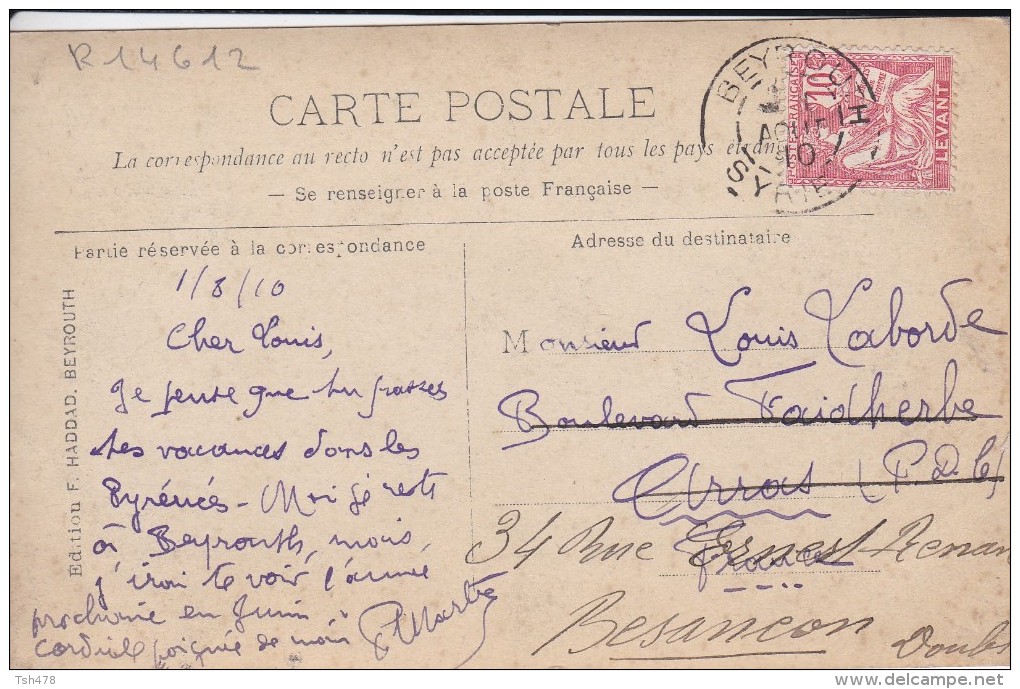 R 14612
CARTE POSTALE
La correspondance au recto n'est pas acceptée par tous les pays étran
— Se renseigner à la poste Française —
BEYROUTH
AOUT
10
SYRIE
10
FRANÇAISE
LEVANT
Partie réservée à la correspondance
Adresse du destinataire
Edition F. HADDAD. BEYROUTH
1/8/10
Cher Louis,
Je pense que tu passes
tes vacances dans les
Pyrénées - Moi je reste
à Beyrouth, mais,
j'irai te voir l'année
prochaine en Juin
cordiale poignée de main
Monsieur Louis Laborde
Boulevard Faidherbe
Arras (P.D.C)
France
34 Rue Ernest-Renan
Besançon
Doubs
Tsh478
delcampe.net